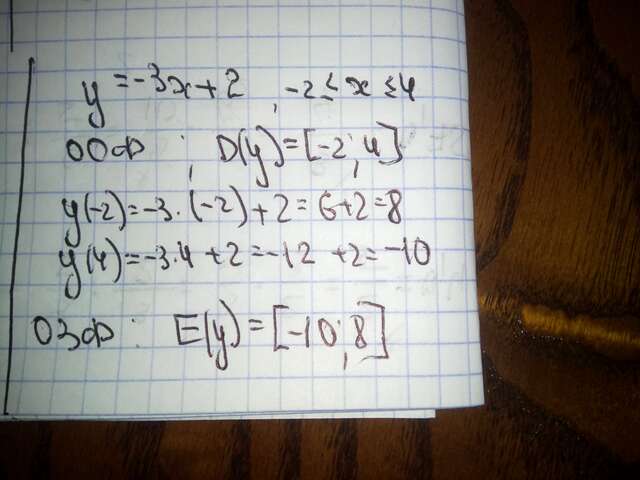 y = -3x + 2, -2 ≤ x ≤ 4
ООФ: D(y) = [-2; 4]
y(-2) = -3 · (-2) + 2 = 6 + 2 = 8
y(4) = -3 · 4 + 2 = -12 + 2 = -10
ОЗФ: E(y) = [-10; 8]